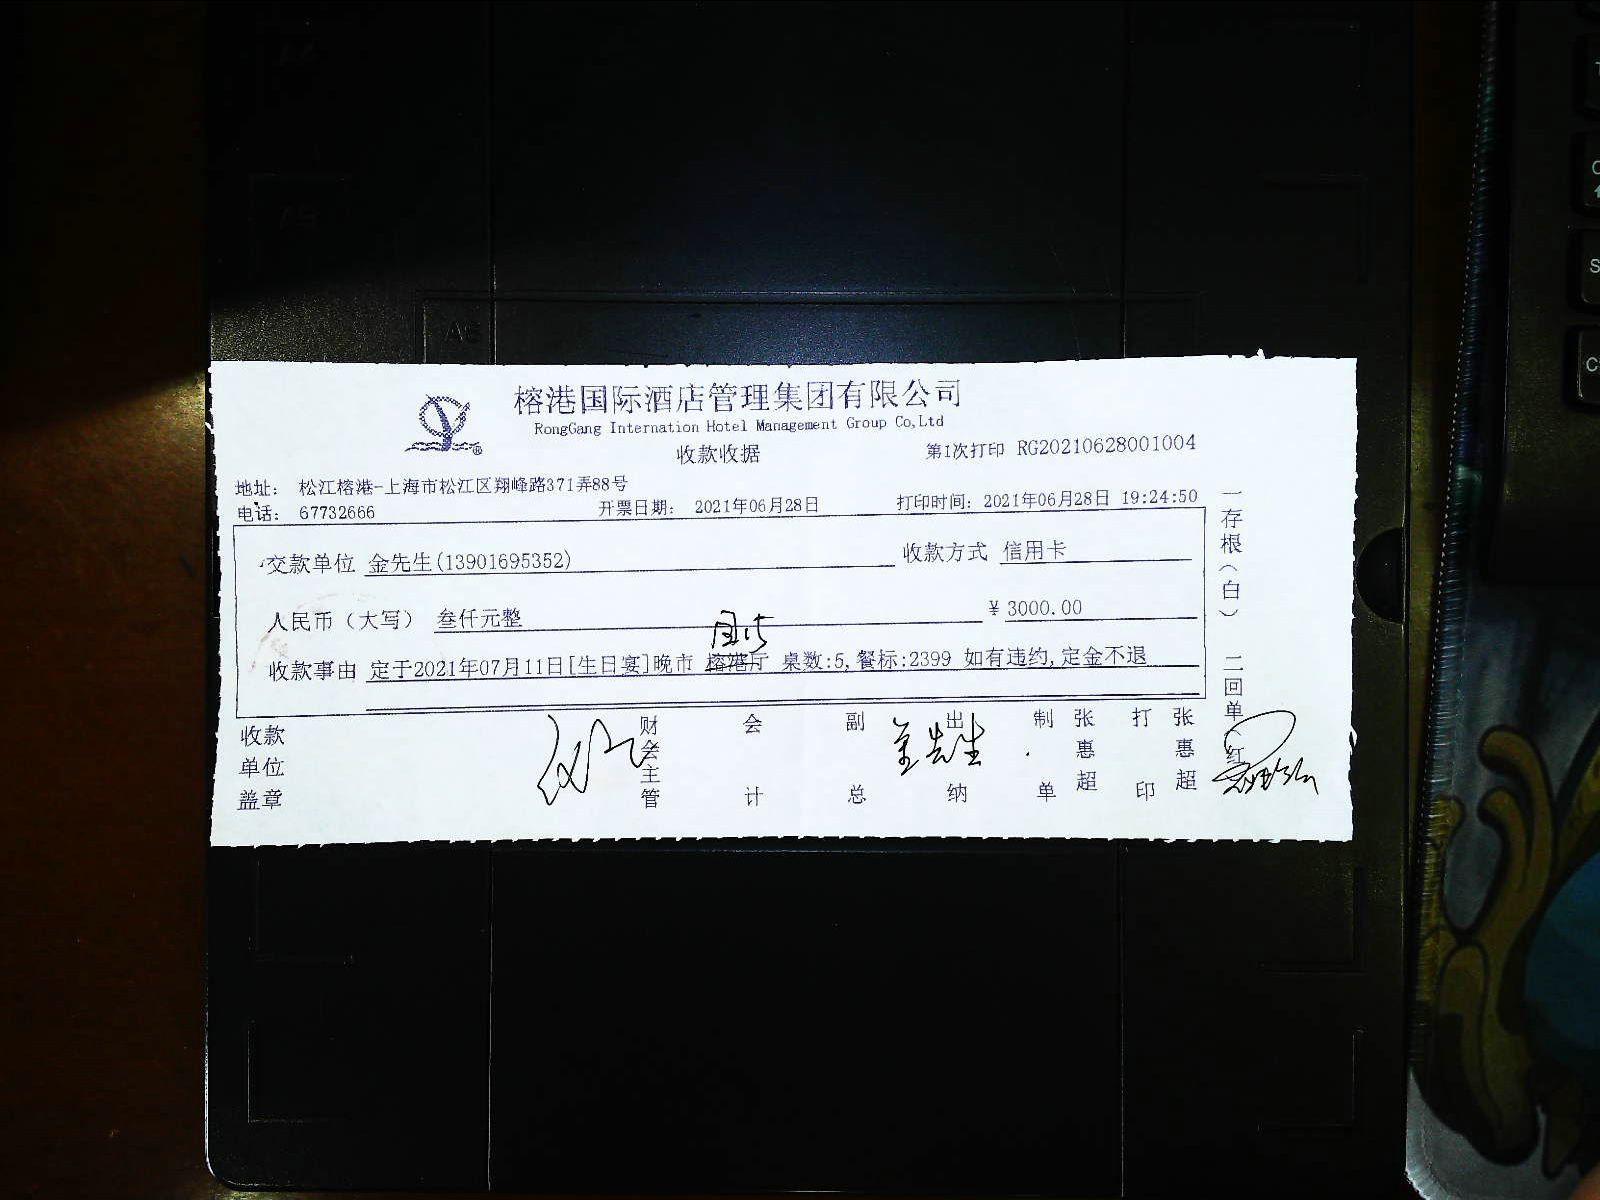 榕港国际酒店管理集团有限公司
RongGang Internation Hotel Management Group Co,Ltd
收款收据
第1次打印 RG20210628001004
地址： 松江榕港-上海市松江区翔峰路371弄88号
电话： 67732666
开票日期： 2021年06月28日
打印时间：2021年06月28日 19:24:50
交款单位 金先生(13901695352)
收款方式 信用卡
人民币（大写） 叁仟元整
¥ 3000.00
收款事由 定于2021年07月11日[生日宴]晚市 榕港厅 桌数:5,餐标:2399 如有违约,定金不退
一存根（白） 二回单（红
收款单位盖章
财会主管
会计
副总
出纳
金先生
制单
张惠超
打印
张惠超
A5
A6